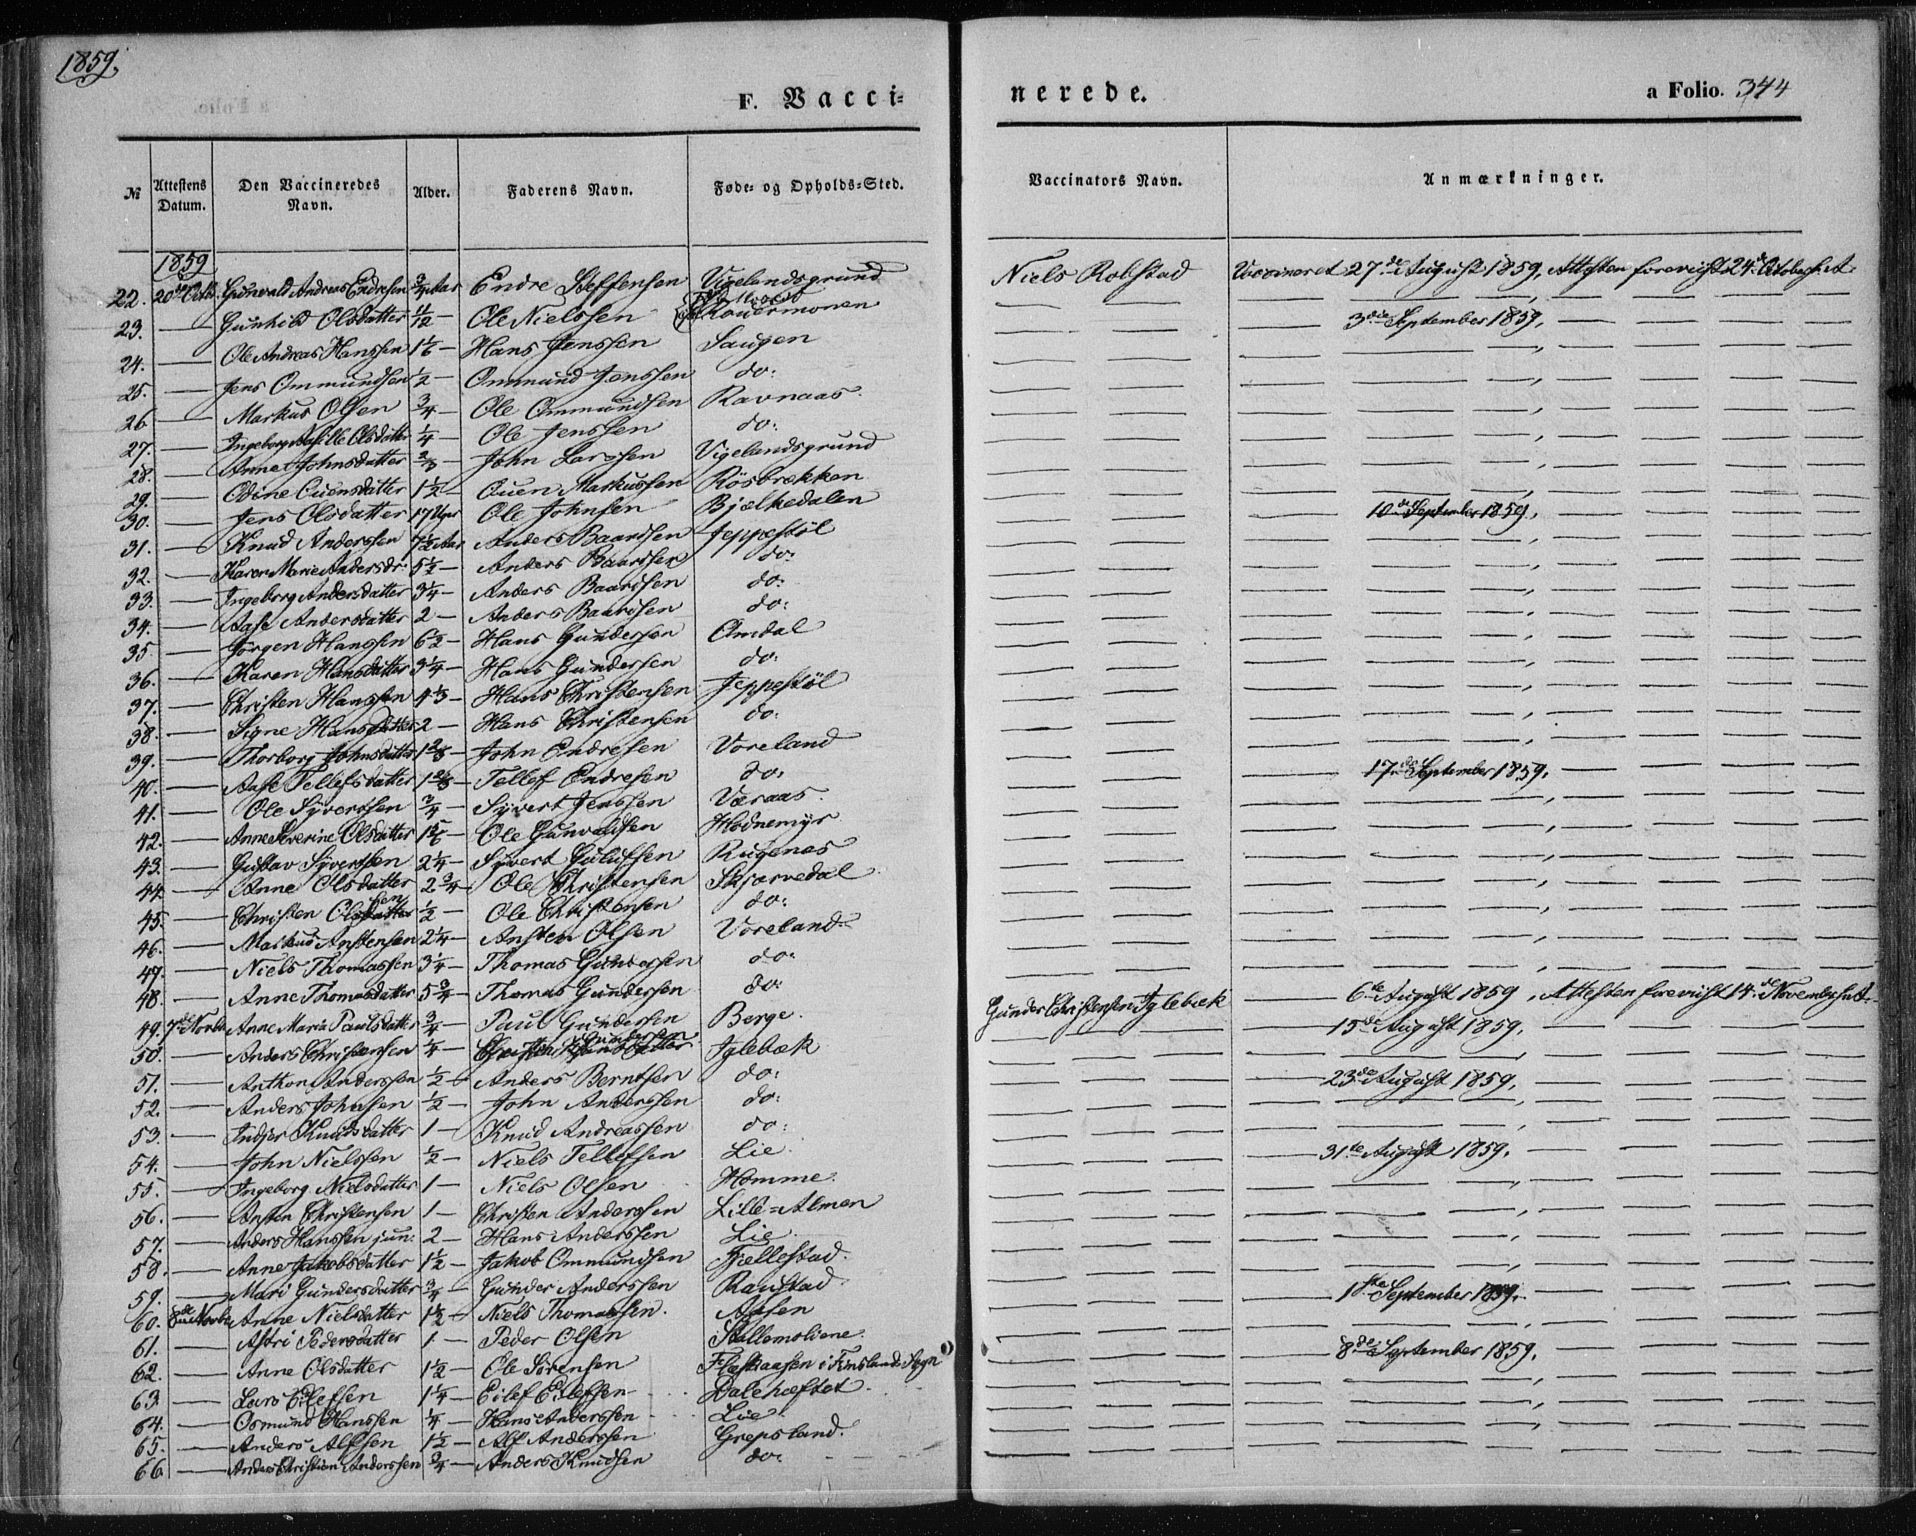 1859.
F. Vacci-
nerede.
a Folio. 344
№ Attestens Datum. Den Vaccineredes Navn. Alder. Faderens Navn. Føde- og Opholds-Sted. Vaccinators Navn. Anmærkninger.
1859
22. 20de Octb. Gunvald Andreas Endresen 3/4 Aar Endre Steffensen Vigelandsgrund Niels Robstad Vaccineret 27de August 1859, Attesten forevist 24de Octobesn. A.
23. — Gunhild Olsdatter 1/12 — Ole Nielssen Rouermonen — — 3die September 1859, — —
24. — Ole Andreas Hanssen 1 1/6 — Hans Jenssen Saugen — — — —
25. — Jens Ommundsen 1/2 — Ommund Jenssen do: — — — —
26. — Markus Olsen 3/4 — Ole Ommundsen Ravnaas. — — — —
27. — Ingeborg Olsdatter 1/4 — Ole Jenssen do: — — — —
28. — Anne Johnsdatter 2/3 John Larssen Vigelandsgrund — — — —
29. — Odine Ouensdatter 1 1/2 — Ouen Markussen Rösbrækken — — — —
30. — Jens Olsdatter 17 Uger Ole Johnsen Bjelkedalen — — 10de September 1859, — —
31. — Knud Anderssen 7 1/2 Aar Anders Baardsen Jeppestöl — — — —
32. — Karen Marie Andersdr: 5 1/2 — Anders Baardsen do: — — — —
33. — Ingeborg Andersdatter 3 1/4 — Anders Baardsen do: — — — —
34. — Aase Andersdatter 2 — Anders Baardsen do: — — — —
35. — Jörgen Hanssen 6 1/2 — Hans Gundersen Omdal — — — —
36. — Karen Hansdatter 3 1/4 — Hans Gundersen do: — — — —
37. — Christen Hanssen 4 1/3 — Hans Christensen Jeppestöl — — — —
38. — Signe Hansdatter 2 — Hans Christensen do: — — — —
39. — Thorborg Johnsdatter 1 2/3 — John Endresen Voreland — — — —
40. — Aase Tellefsdatter 1 2/3 — Tellef Endresen do: — — 17de September 1859, — —
41. — Ole Syverssen 3/4 — Syvert Jenssen Væraas. — — — —
42. — Anne Severine Olsdatter 1 5/6 — Ole Gunvaldsen Hodnemyr — — — —
43. — Gustav Syverssen 2 1/4 — Syvert Gulufsen Rugenes — — — —
44. — Anne Olsdatter 2 3/4 — Ole Christensen Skjærvedal — — — —
45. — Christen Olssen 1/2 — Ole Christensen do: — — — —
46. — Markus Anstensen 2 1/4 — Ansten Olsen Voreland — — — —
47. — Niels Thomassen 3 1/4 — Thomas Gundersen do: — — — —
48. — Anne Thomasdatter 5 3/4 — Thomas Gundersen do: — — — —
49. 7de Novbr Anne Maria Paulsdatter 3/4 — Paul Gundersen Berge. Gunder Christensen Iglebæk — 6te August 1859, Attesten forevist 14de Novembesn. A.
50. — Anders Christensen 1/4 — Christen Gundersen Iglebæk — — 15de August 1859, — —
51. — Anthon Anderssen 1/2 — Anders Berntsen do: — — — —
52. — Anders Johnsen 1/2 — John Anderssen do: — — 23de August 1859, — —
53. — Indjer Knudsdatter 1 — Knud Andreassen do: — — — —
54. — John Nielssen 1/2 — Niels Tellefsen Lie. — — 31te August 1859, — —
55. — Ingeborg Nielsdatter 1 — Niels Olsen Homme. — — — —
56. — Ansten Christensen 1 — Christen Anderssen Lille-Almen — — — —
57. — Anders Hanssen jun. 2 — Hans Anderssen Lie. — — — —
58. — Anne Jakobsdatter 1 1/2 — Jakob Ommundsen Fjellestad. — — — —
59. — Mari Gundersdatter 3/4 — Gunder Anderssen Raustad. — — 1ste September 1859, — —
60. 8de Novbr Anne Nielsdatter 1 1/2 — Niels Thomassen. Aasen — — — —
61. — Astri Pedersdatter 1 — Peder Olsen Stallemoliene. — — 8de September 1859, — —
62. — Anne Olsdatter 1 1/2 — Ole Sörensen i Finslands Sogn — — — —
63. — Lars Eilefsen 1 1/4 — Eilef Eilefsen Dalehæftet. — — — —
64. — Osmund Hanssen 1/4 — Hans Anderssen Lie — — — —
65. — Anders Alfsen 1 1/2 — Alf Anderssen Grepsland. — — — —
66. — Anders Christian Anderssen 3/4 — Anders Knudsen do: — — — —